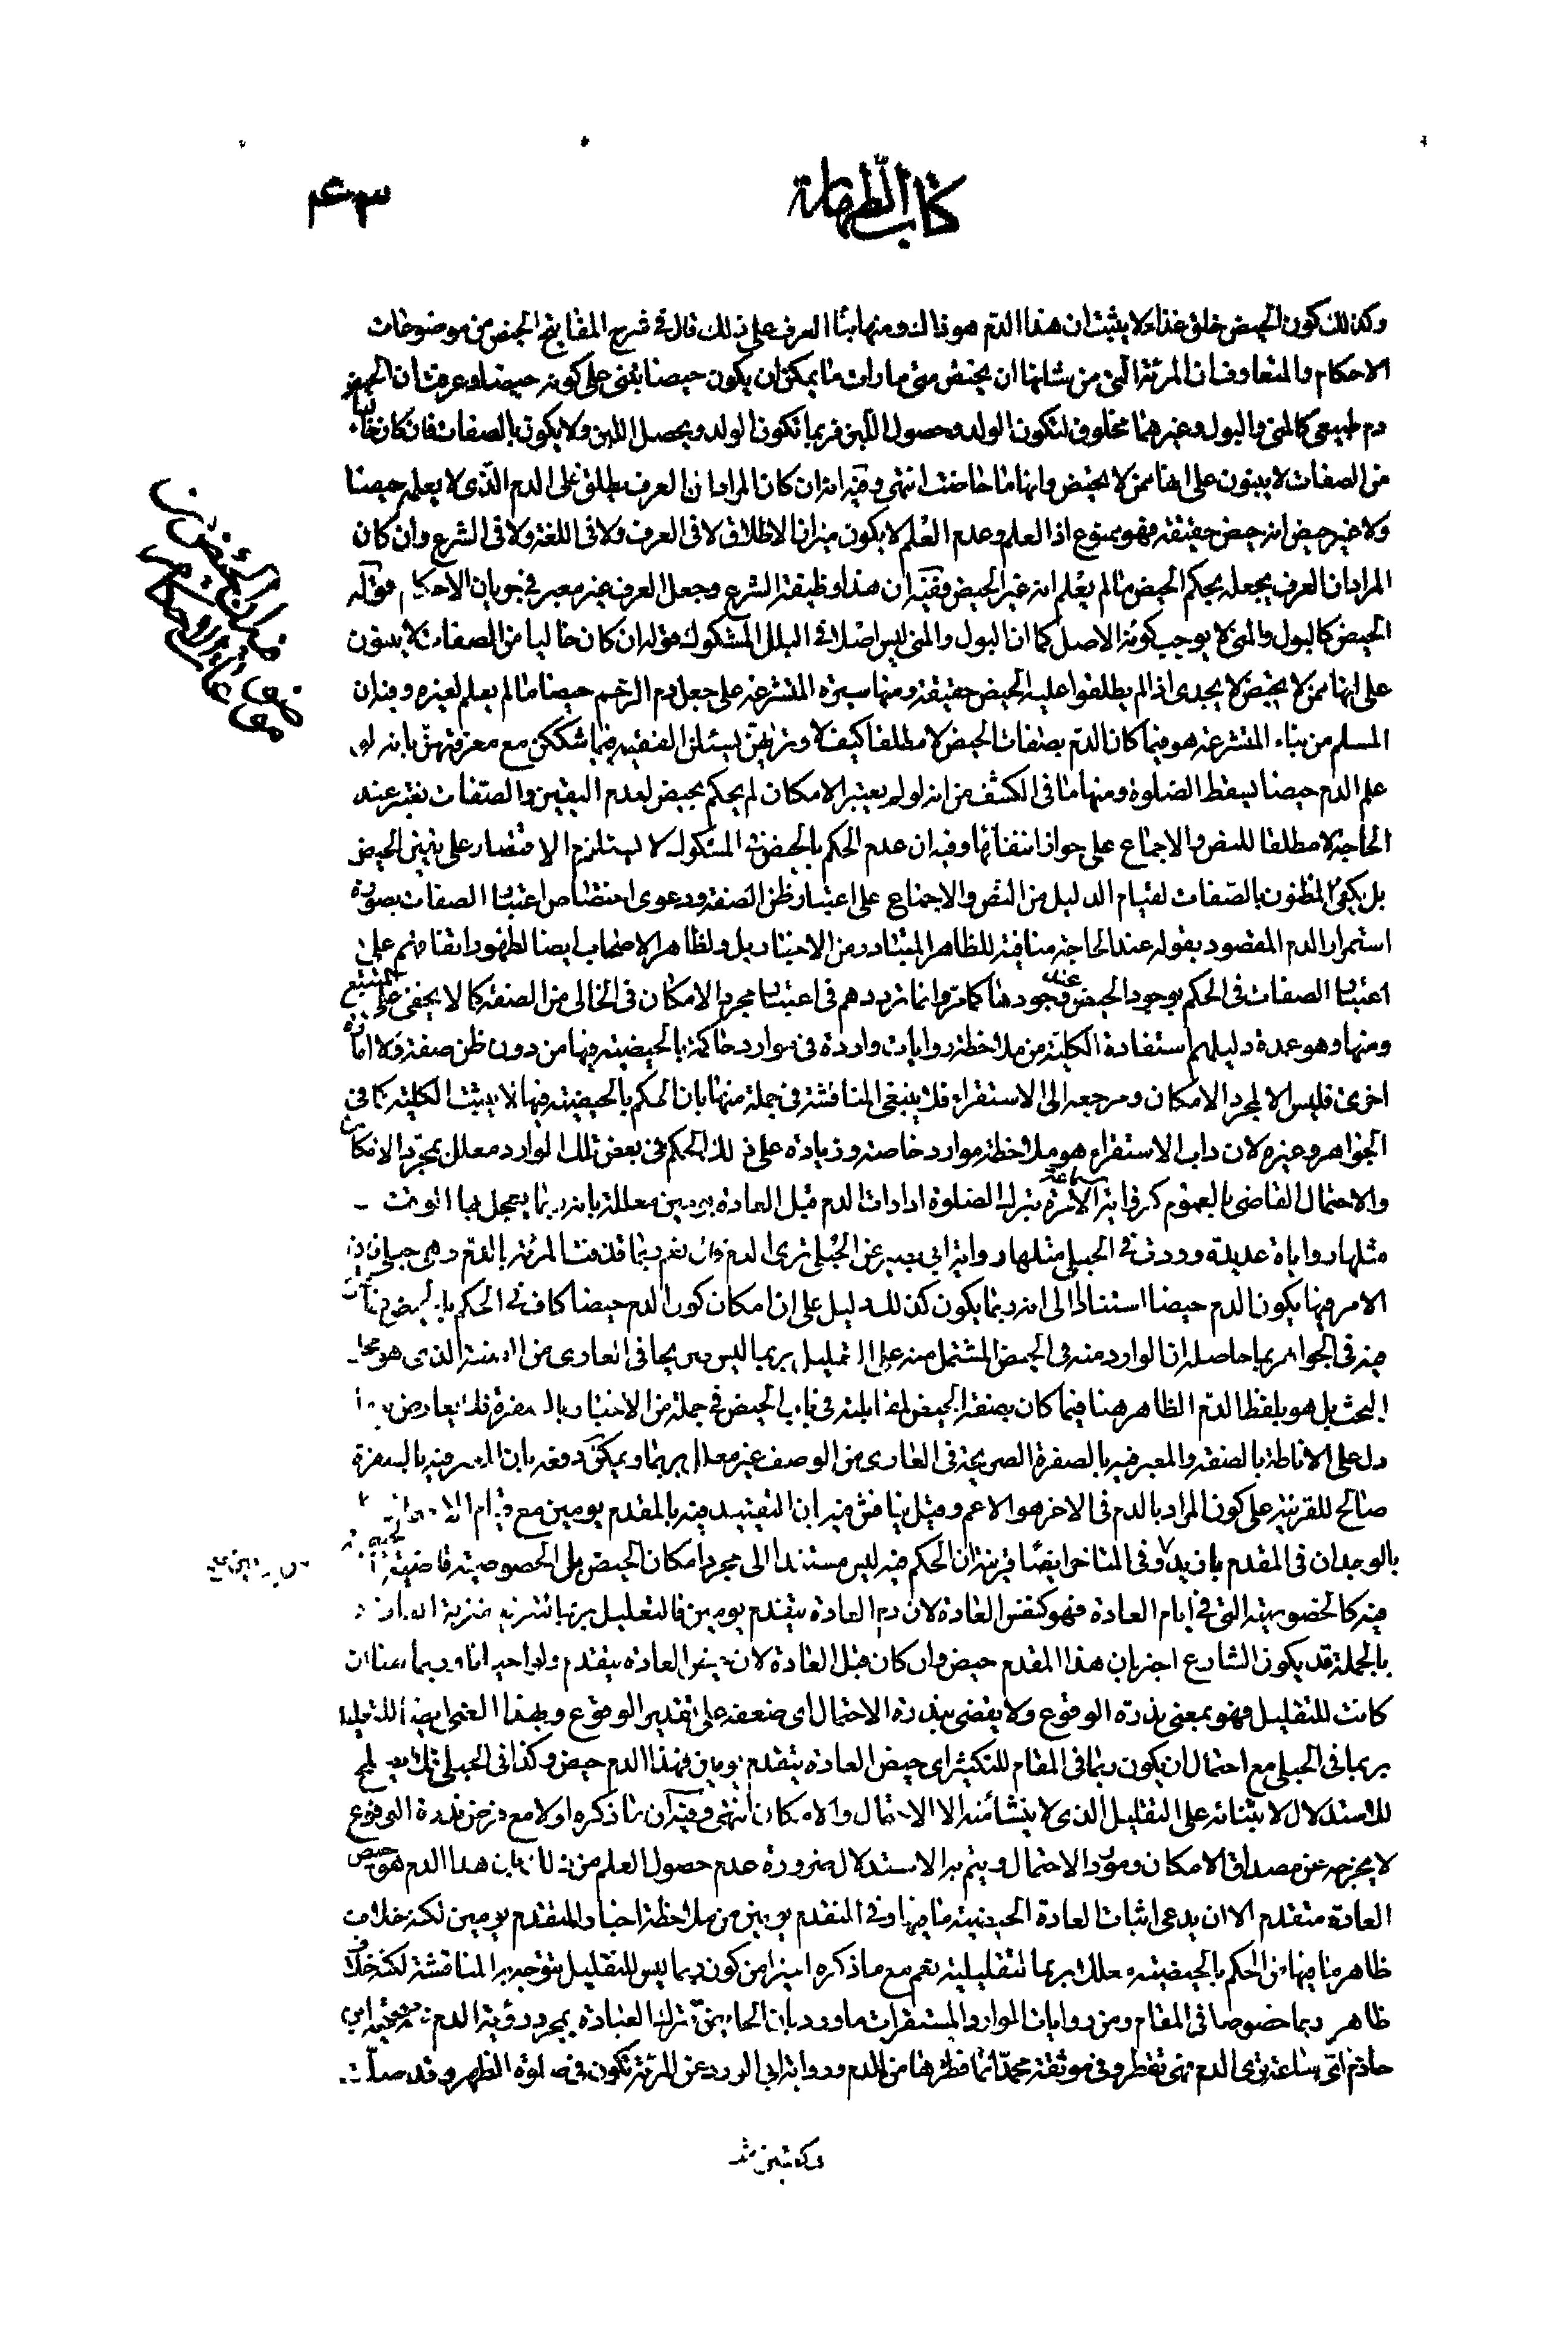 كتاب الطهارة
وكذلك كون الحيض خلق غذاء لا يثبت ان هذا الدم هو ذلك ومنها بناء العرف على ذلك قال في شرح المفاتيح الحيض من موضوعات
الاحكام والمتعارف ان المرئة التي من شانها ان يحيض متى ما رات ما يمكن ان يكون حيضا يبنى على كونه حيضا وعرفت ان الحيض
دم طبيعى كالمنى والبول وغيرهما مخلوق لتكون الولد وحصول اللبن فربما تكون الولد ويحصل اللبن ولا يكون بالصفات فان كان خاليا
من الصفات لا يبنون على انها ممن لا يحيض وانها ما حاضت انتهى وفيه انه ان كان المراد ان العرف يطلق على الدم الذى لا يعلم حيضا
ولا غير حيض انه حيض حقيقة فهو ممنوع اذ العلم وعدم العلم لا يكون ميزانا لاطلاق لا فى العرف ولا فى اللغة ولا فى الشرع وان كان
المراد ان العرف يجعله بحكم الحيض ما لم يعلم انه غير الحيض ففيه ان هذا وظيفة الشرع وجعل العرف غير معبر في جريان الاحكام فقوله
الحيض كالبول والمنى لا يوجب كونه الاصل كما ان البول والمنى ليس اصلا فى البلل المشكوك وقوله ان كان خاليا من الصفات لا يبنون
على انها ممن لا يحيض لا يجدى اذ الم يطلقوا عليه الحيض حقيقة ومنها سيرة المتشرعة على جعل دم الرحم حيضا ما لم يعلم لغيره وفيه ان
المسلم من بناء المتشرعة هو فيما كان الدم بصفات الحيض لا مطلقا كيف لا وتريهن يسئلن الفقيه فيما شككن مع معرفتهن بانه لو
علم الدم حيضا يسقط الصلوة ومنها ما فى الكشف من انه لو لم يعتبر الامكان لم يحكم بحيض لعدم اليقين والصفات تعتبر عند
الحاجة لا مطلقا للنص والاجماع على جواز انتفائها وفيه ان عدم الحكم بالحيض في المشكوك لا يستلزم الاقتصار على يقين الحيض
بل يكفى المظنون بالصفات لقيام الدليل من النص والاجماع على اعتبار ظن الصفة ودعوى اختصاص اعتبار الصفات بصورة
استمرار الدم المقصود بقوله عند الحاجة منافية للظاهر المتبادر من الاخبار بل ولظاهر الاصحاب ايضا لظهور اتفاقهم على
اعتبار الصفات فى الحكم بوجود الحيض عند وجودها كما مر وانما ترددهم فى اعتبار مجرد الامكان فى الخالى من الصفة كما لا يخفى على المتتبع
ومنها وهو عمدة دليلهم استفادة الكلية من ملاحظة روايات واردة فى موارد حاكمة بالحيضية فيها من دون ظن صفة ولا امارة
اخرى فليس الا لمجرد الامكان ومرجعه الى الاستقراء فلا ينبغى المناقشة فى جملة منها بان الحكم بالحيضية فيها لا يثبت الكلية كما فى
الجواهر وغيره لان داب الاستقراء هو ملاحظة موارد خاصة وزيادة على ذلك الحكم فى بعض تلك الموارد معلل بمجرد الامكان
والاحتمال القاضى بالعموم كرواية سماعة الامرة بترك الصلوة اذا رات الدم قبل العادة بيومين معللة بانه ربما يعجل بها الوقت
مثلها رواياة عديدة ووردت فى الحبلى مثلها رواية ابى بصير عن الحبلى ترى الدم قال نعم ربما قذفت المرئة بالدم وهى حبلى
الامر فيها يكون الدم حيضا استنادا الى انه ربما يكون كذلك دليل على ان امكان كون الدم حيضا كاف فى الحكم بالحيض
فيه فى الجواهر بما حاصله ان الوارد منه فى الحيض المشتمل منه على التعليل بربما ليس صريحا فى العارى من الصفة الذى هو محل
البحث بل هو بلفظ الدم الظاهر هنا فيما كان بصفة الحيض لمقابلته فى باب الحيض فى جملة من الاخبار بالصفرة فلا يعارض
دل على الاناطة بالصفة والمعبر فيه بالصفرة الصريحة فى العارى من الوصف غير معلل بربما ويمكن دفعه بان المعبر فيه بالصفرة
صالح للقرينة على كون المراد بالدم فى الاخر هو الاعم وقيل يناقش فيه ان التقييد فيه بالمقدم يومين مع
بالوجدان فى المقدم بازيد وفى المتاخر ايضا قرينة ان الحكم فيه ليس مستندا الى مجرد امكان الحيض بل الخصوصية قاضية
فيه كالخصوصية التى فى ايام العادة فهو كنفس العادة لان دم العادة يتقدم يومين فالتعليل بربما
بالجملة قد يكون الشارع اخبر بان هذا المقدم حيض وان كان قبل العادة لان حيض العادة يتقدم ولو احيانا وربما هنا ان
كانت للتقليل فهو بمعنى ندرة الوقوع ولا يقضى بندرة الاحتمال اى ضعفه على تقدير الوقوع وبهذا المعنى ايضا التعليل
بربما فى الحبلى مع احتمال ان يكون ربما فى المقام للتكثير اى حيض العادة يتقدم يومين فهذا الدم حيض وكذا فى الحبلى فلا يصلح
للاستدلال لابتنائه على التقليل الذى لا ينشأ منه الا الاحتمال والامكان انتهى وفيه ان ما ذكره اولا مع فرض ندرة الوقوع
لا يخرجه عن مصداق الامكان ومورد الاحتمال ويتم به الاستدلال ضرورة عدم حصول العلم من ذلك بان هذا الدم هو حيض
العادة متقدم الا ان يدعى اثبات العادة الحيضية ما فيها وفى المتقدم يومين من ملاحظة اخبار المتقدم يومين لكنه خلاف
ظاهر ما فيها من الحكم بالحيضية معللا بربما التقليلية نعم مع ما ذكره اخيرا من كون ربما ليس للتقليل يتوجه المناقشة لكنه خلاف
ظاهر ربما خصوصا فى المقام ومن روايات الموارد المستقرات ما ورد بان الحائض تترك العبادة بمجرد رؤية الدم
حازم اى ساعة ترى الدم فهى تفطر وفى موثقة محمد انما فطرها من الدم ورواية ابى الورد عن المرئة تكون فى صلوة الظهر وقد صلت
ركعتين